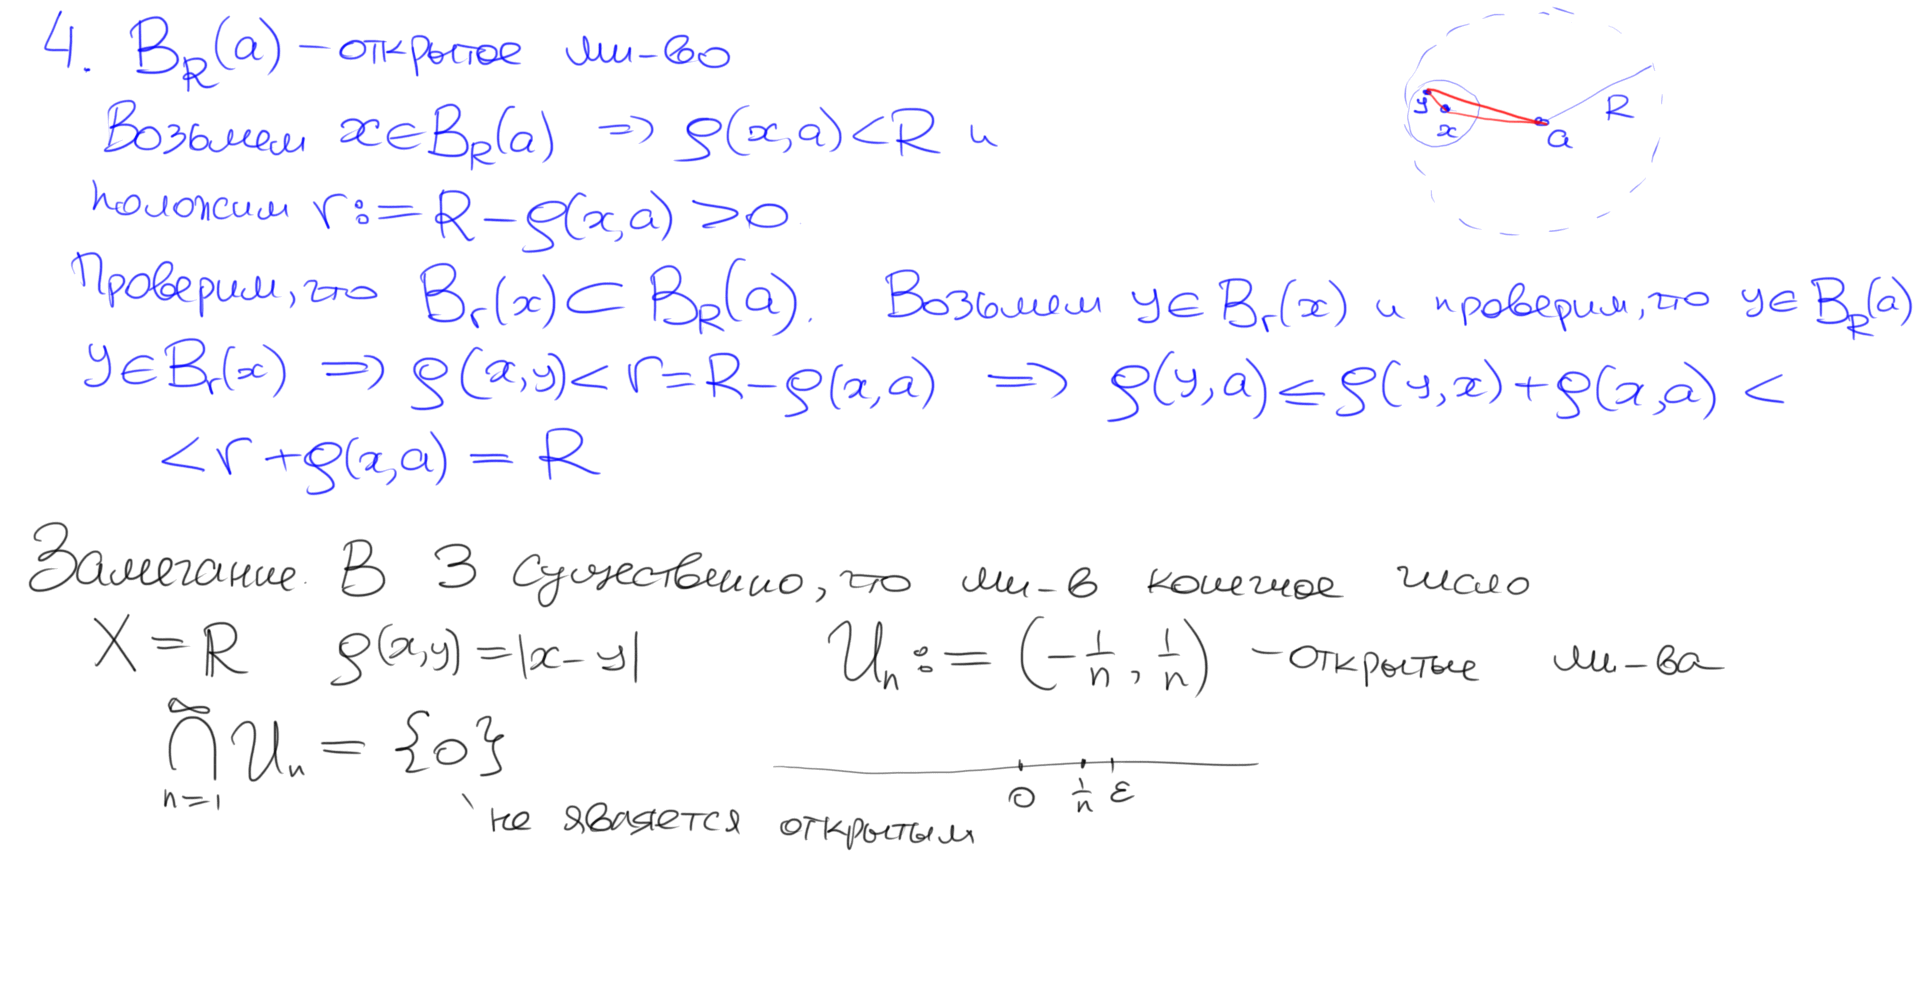 4. B_R(a) – открытое мн-во
y x a R
Возьмем x∈B_R(a) => ρ(x,a)<R и
положим r:=R–ρ(x,a)>0
Проверим, что B_r(x)⊂B_R(a). Возьмем y∈B_r(x) и проверим, что y∈B_R(a)
y∈B_r(x) => ρ(x,y)<r=R–ρ(x,a) => ρ(y,a)≤ρ(y,x)+ρ(x,a)<
<r+ρ(x,a)=R
Замечание. В 3 существенно, что мн-в конечное число
X=R ρ(x,y)=|x–y| U_n:=(-1/n, 1/n) – открытые мн-ва
∩_{n=1}^∞ U_n={0}
0 1/n ε
не является открытым